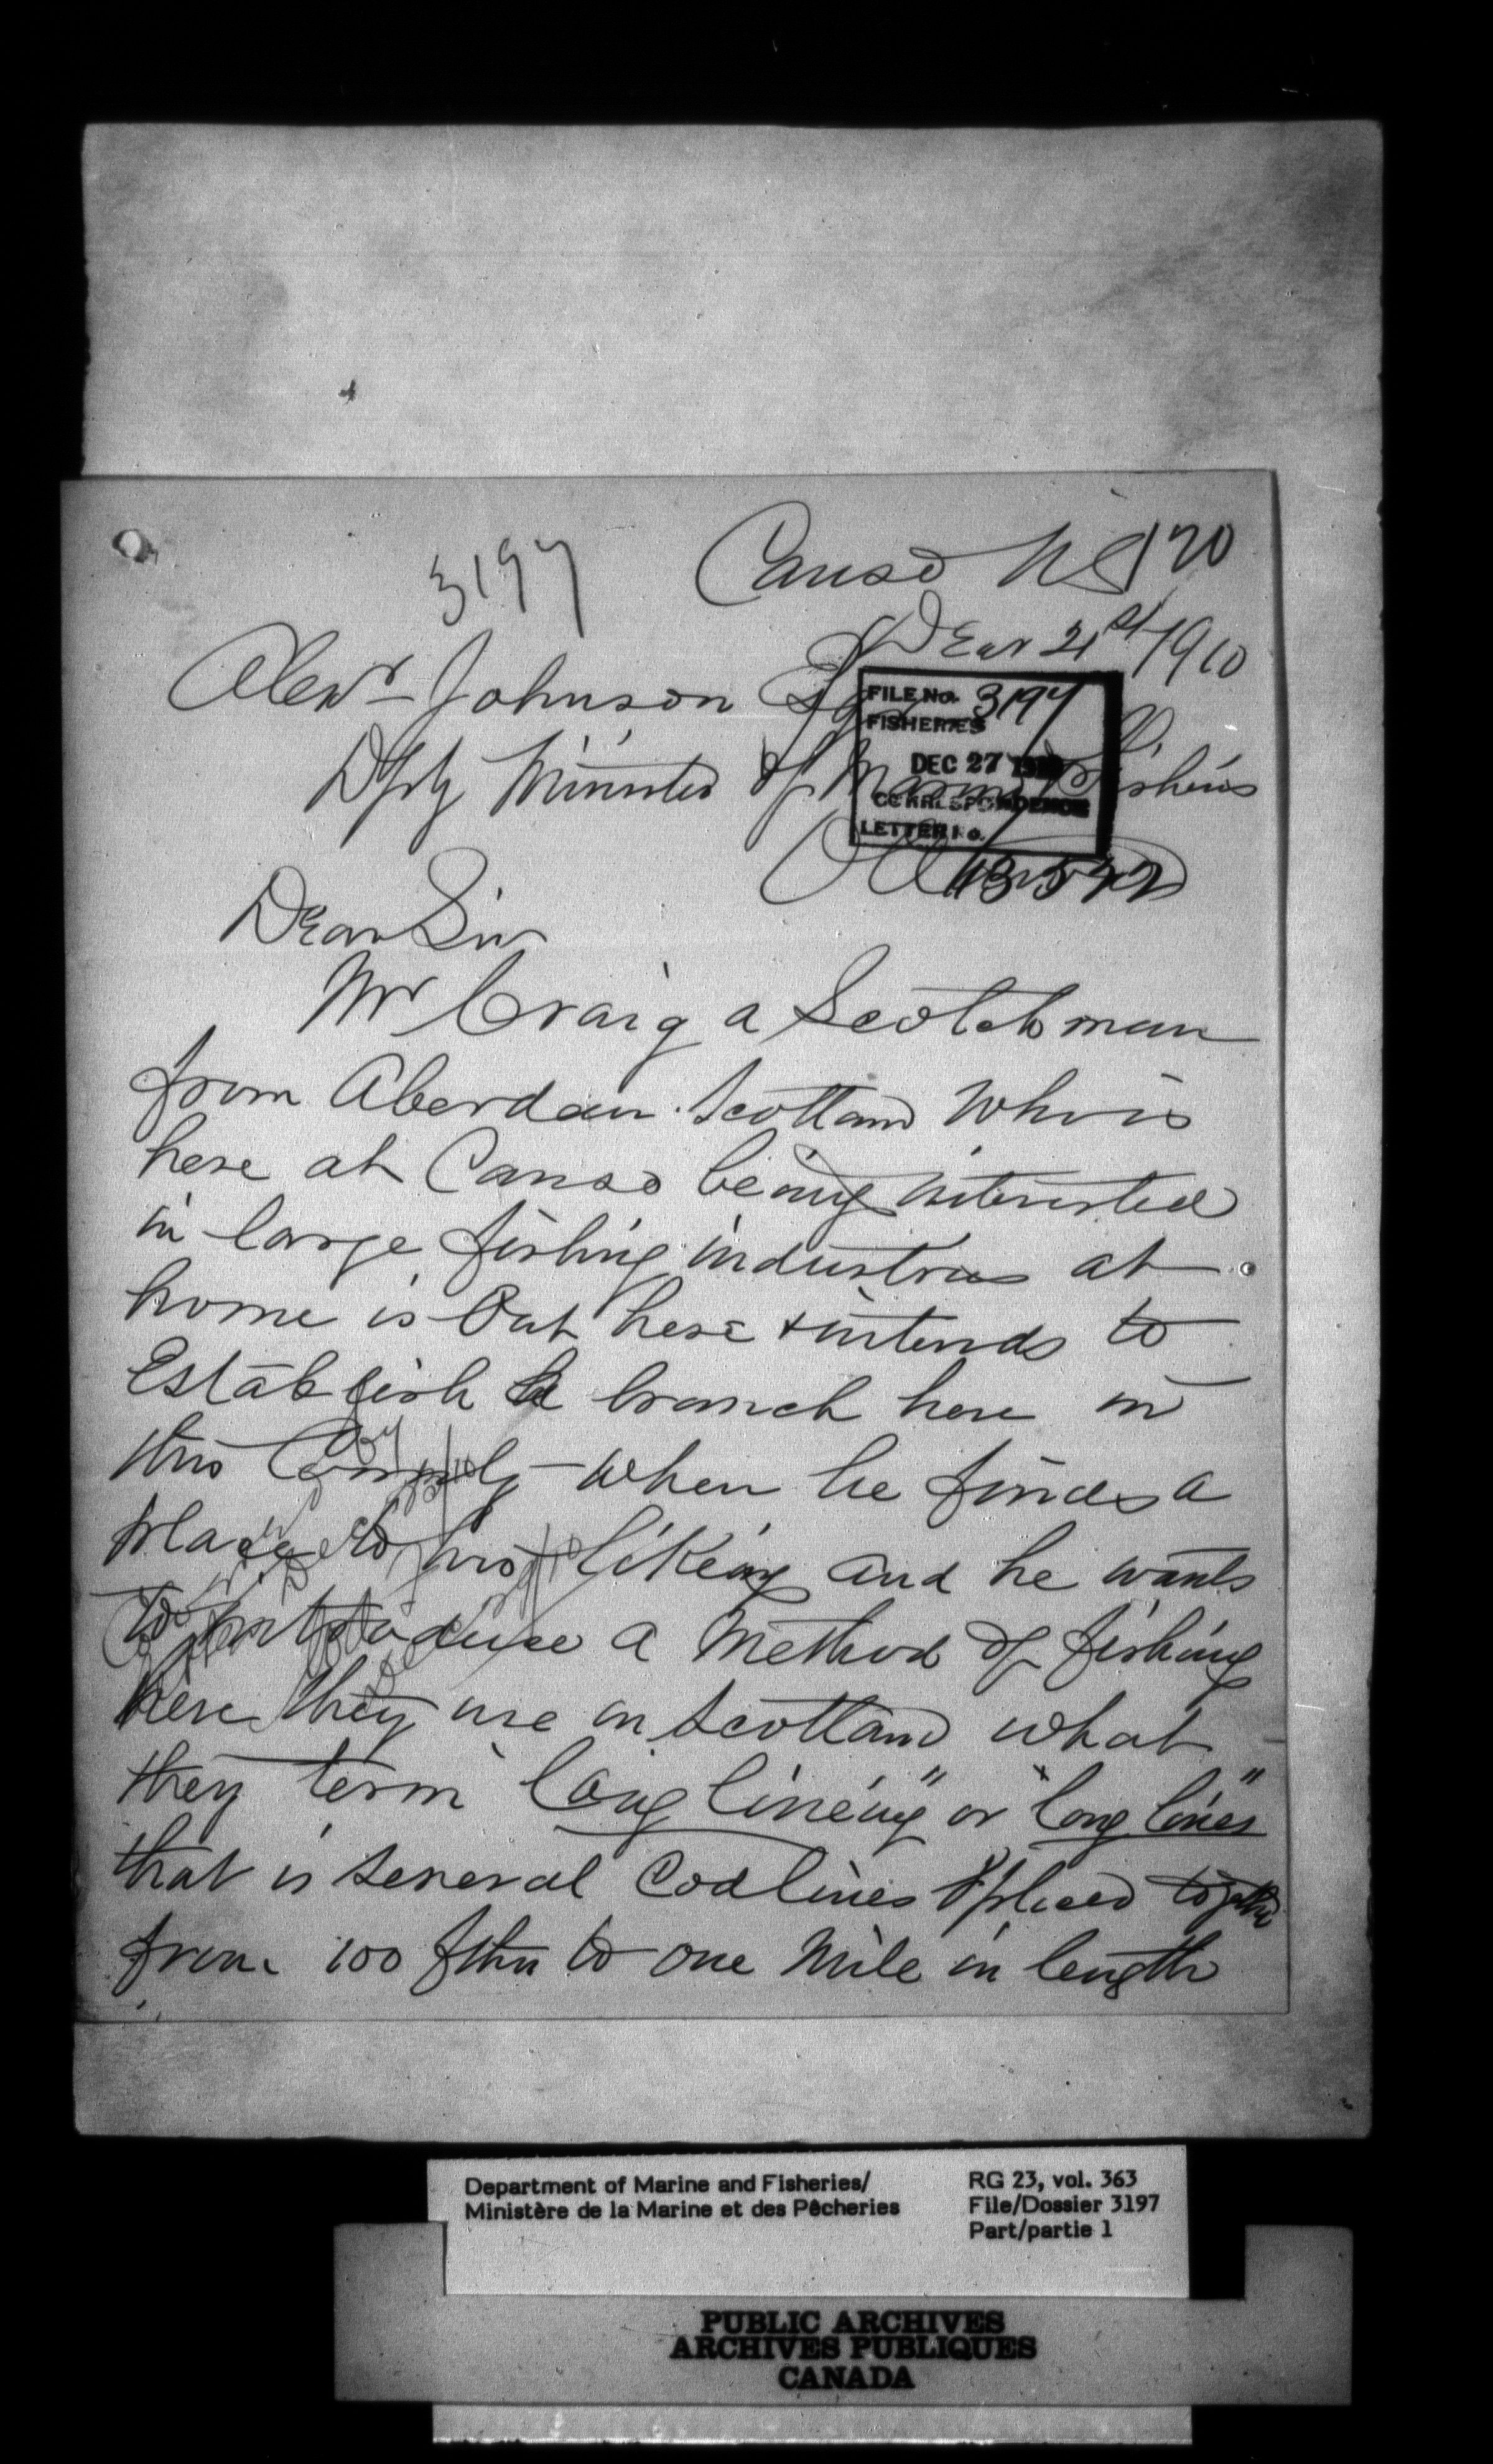 3197
Canso NS 120
Decr 21st/1910
Alexr Johnson Esqr
FILE No. 3197
FISHERIES
DEC 27 1910
CORRESPONDENCE
LETTER No.
Dpty Minister of Marine & Fisheries
Dear Sir
Mr Craig a Scotchman
from Aberdeen Scotland who is
here at Canso being interested
in large fishing industries at
home is Out here & intends to
Establish a branch here in
this County when he finds a
place to his likeing and he wants
to introduce a Method of fishing
here they use in Scotland what
they term "long lineing" or "long lines"
that is several Codlines Spliced together
from 100 fthm to one Mile in length
Department of Marine and Fisheries/
Ministère de la Marine et des Pêcheries
RG 23, vol. 363
File/Dossier 3197
Part/partie 1
PUBLIC ARCHIVES
ARCHIVES PUBLIQUES
CANADA